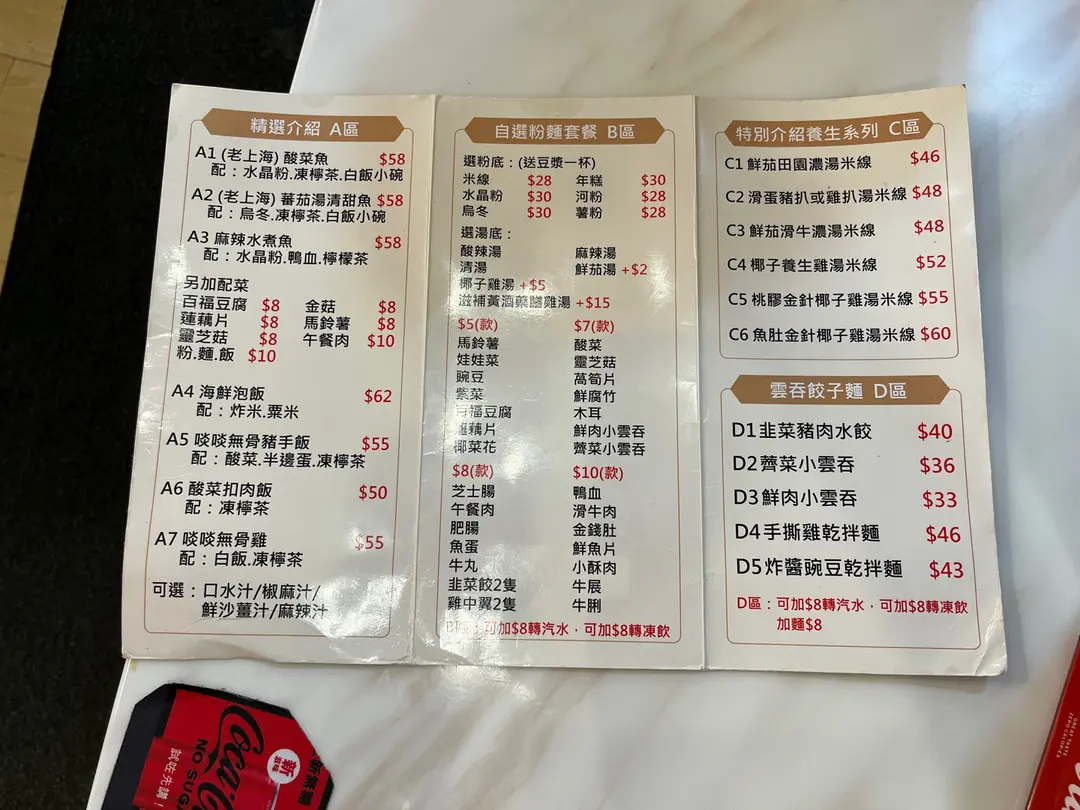 精選介紹 A區
A1 (老上海) 酸菜魚 $58
配：水晶粉.凍檸茶.白飯小碗
A2 (老上海) 蕃茄湯清甜魚 $58
配：烏冬.凍檸茶.白飯小碗
A3 麻辣水煮魚 $58
配：水晶粉.鴨血.檸檬茶
另加配菜
百福豆腐 $8 金菇 $8
蓮藕片 $8 馬鈴薯 $8
靈芝菇 $8 午餐肉 $10
粉.麵.飯 $10
A4 海鮮泡飯 $62
配：炸米.粟米
A5 啖啖無骨豬手飯 $55
配：酸菜.半邊蛋.凍檸茶
A6 酸菜扣肉飯 $50
配：凍檸茶
A7 啖啖無骨雞 $55
配：白飯.凍檸茶
可選：口水汁/椒麻汁/
鮮沙薑汁/麻辣汁
自選粉麵套餐 B區
選粉底：(送豆漿一杯)
米線 $28 年糕 $30
水晶粉 $30 河粉 $28
烏冬 $30 薯粉 $28
選湯底：
酸辣湯 麻辣湯
清湯 鮮茄湯 +$2
椰子雞湯 +$5
滋補黃酒藥膳雞湯 +$15
$5(款) $7(款)
馬鈴薯 酸菜
娃娃菜 靈芝菇
豌豆 萵筍片
紫菜 鮮腐竹
百福豆腐 木耳
蓮藕片 鮮肉小雲吞
椰菜花 薺菜小雲吞
$8(款) $10(款)
芝士腸 鴨血
午餐肉 滑牛肉
肥腸 金錢肚
魚蛋 鮮魚片
牛丸 小酥肉
韭菜餃2隻 牛展
雞中翼2隻 牛脷
B區：可加$8轉汽水．可加$8轉凍飲
特別介紹養生系列 C區
C1 鮮茄田園濃湯米線 $46
C2 滑蛋豬扒或雞扒湯米線 $48
C3 鮮茄滑牛濃湯米線 $48
C4 椰子養生雞湯米線 $52
C5 桃膠金針椰子雞湯米線 $55
C6 魚肚金針椰子雞湯米線 $60
雲吞餃子麵 D區
D1 韭菜豬肉水餃 $40
D2 薺菜小雲吞 $36
D3 鮮肉小雲吞 $33
D4 手撕雞乾拌麵 $46
D5 炸醬豌豆乾拌麵 $43
D區：可加$8轉汽水．可加$8轉凍飲
加麵$8
Coca
NO SUG
新
試咗先講！
GREAT TASTE
ZERO CALORIES